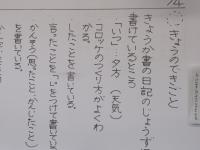 きょうのできごと
きょうか書の日記のじょうず
書けているところ
「いつ」…夕方 (天気)
コロッケのつくり方がよくわ
かる。
したことを書いている。
言ったことを「」をつけて書いている
かんそう(思ったこと・かんじたこと)
を書いている。